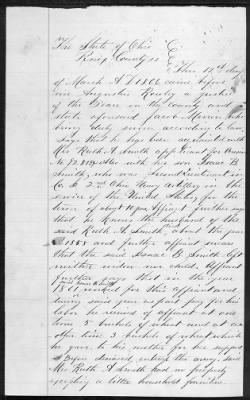 The State of Ohio
Ross County ss
This 12th day
of March A.D 1866 came before
me Augustus Rowby a justice
of the Peace in the county and
state aforesaid Jacob
being duly sworn according to law
says that he has been acquainted with
Mrs Ruth A. Smith applicant for Pension
No also with her son Isaac B.
Smith, who was Second Lieutenant in
Co. 2nd Ohio Heavy Artillery in the
service of the United States, for the
term of about years affiant further says
that he knows the husband of the
said Ruth A. Smith about the year
1858 and further affiant swears
that the said Isaac B. Smith left
neither widow nor child. Affiant
further says that in the year
1861 said Isaac B. Smith worked for this affiant and
during said year as part pay for his
labor he received of affiant at one
time 5 bushels of wheat and at an
other time 3 bushels of wheat which
he gave to his mother for her support
Before deceased entering the army, said
Mrs Ruth A. Smith had no property
excepting a little household furniture.